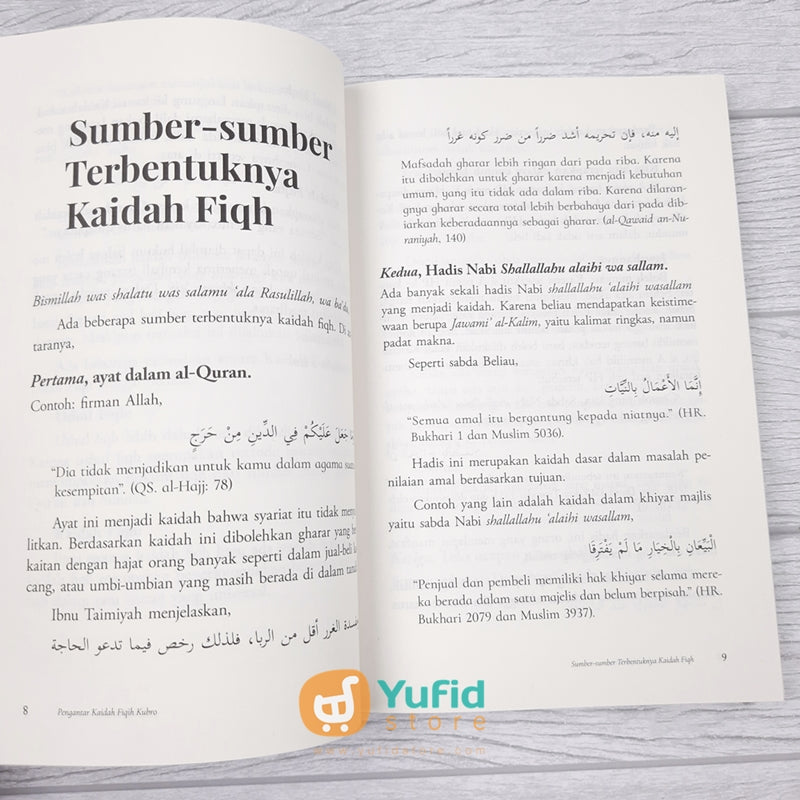 Sumber-sumber
Terbentuknya
Kaidah Fiqh
Bismillah was shalatu was salamu ‘ala Rasulillah, wa ba’du,
Ada beberapa sumber terbentuknya kaidah fiqh. Di
taranya,
Pertama, ayat dalam al-Quran.
Contoh: firman Allah,
جَعَلَ عَلَيْكُمْ فِي الدِّينِ مِنْ حَرَجٍ
“Dia tidak menjadikan untuk kamu dalam agama
kesempitan”. (QS. al-Hajj: 78)
Ayat ini menjadi kaidah bahwa syariat itu tidak
litkan. Berdasarkan kaidah ini dibolehkan gharar yang
kaitan dengan hajat orang banyak seperti dalam jual-beli
cang, atau umbi-umbian yang masih berada di dalam
Ibnu Taimiyah menjelaskan,
الغرر أقل من الربا، فلذلك رخص فيما تدعو الحاجة
8 Pengantar Kaidah Fiqih Kubro
إليه منه، فإن تحريمه أشد ضرراً من ضرر كونه غرراً
Mafsadah gharar lebih ringan dari pada riba. Karena
itu dibolehkan untuk gharar karena menjadi kebutuhan
umum, yang itu tidak ada dalam riba. Karena dilarang-
gnya gharar secara total lebih berbahaya dari pada dibi-
iarkan keberadaannya sebagai gharar. (al-Qawaid an-Nu-
raniyah, 140)
Kedua, Hadis Nabi Shallallahu alaihi wa sallam.
Ada banyak sekali hadis Nabi shallallahu ‘alaihi wasallam
yang menjadi kaidah. Karena beliau mendapatkan keistime-
waan berupa Jawami’ al-Kalim, yaitu kalimat ringkas, namun
padat makna.
Seperti sabda Beliau,
إِنَّمَا الأَعْمَالُ بِالنِّيَّاتِ
“Semua amal itu bergantung kepada niatnya.” (HR.
Bukhari 1 dan Muslim 5036).
Hadis ini merupakan kaidah dasar dalam masalah pe-
nilaian amal berdasarkan tujuan.
Contoh yang lain adalah kaidah dalam khiyar majlis
yaitu sabda Nabi shallallahu ‘alaihi wasallam,
الْبَيِّعَانِ بِالْخِيَارِ مَا لَمْ يَفْتَرِقَا
“Penjual dan pembeli memiliki hak khiyar selama mere-
ka berada dalam satu majelis dan belum berpisah.” (HR.
Bukhari 2079 dan Muslim 3937).
Sumber-sumber Terbentuknya Kaidah Fiqh 9
Yufid
store
www.yufidstore.com